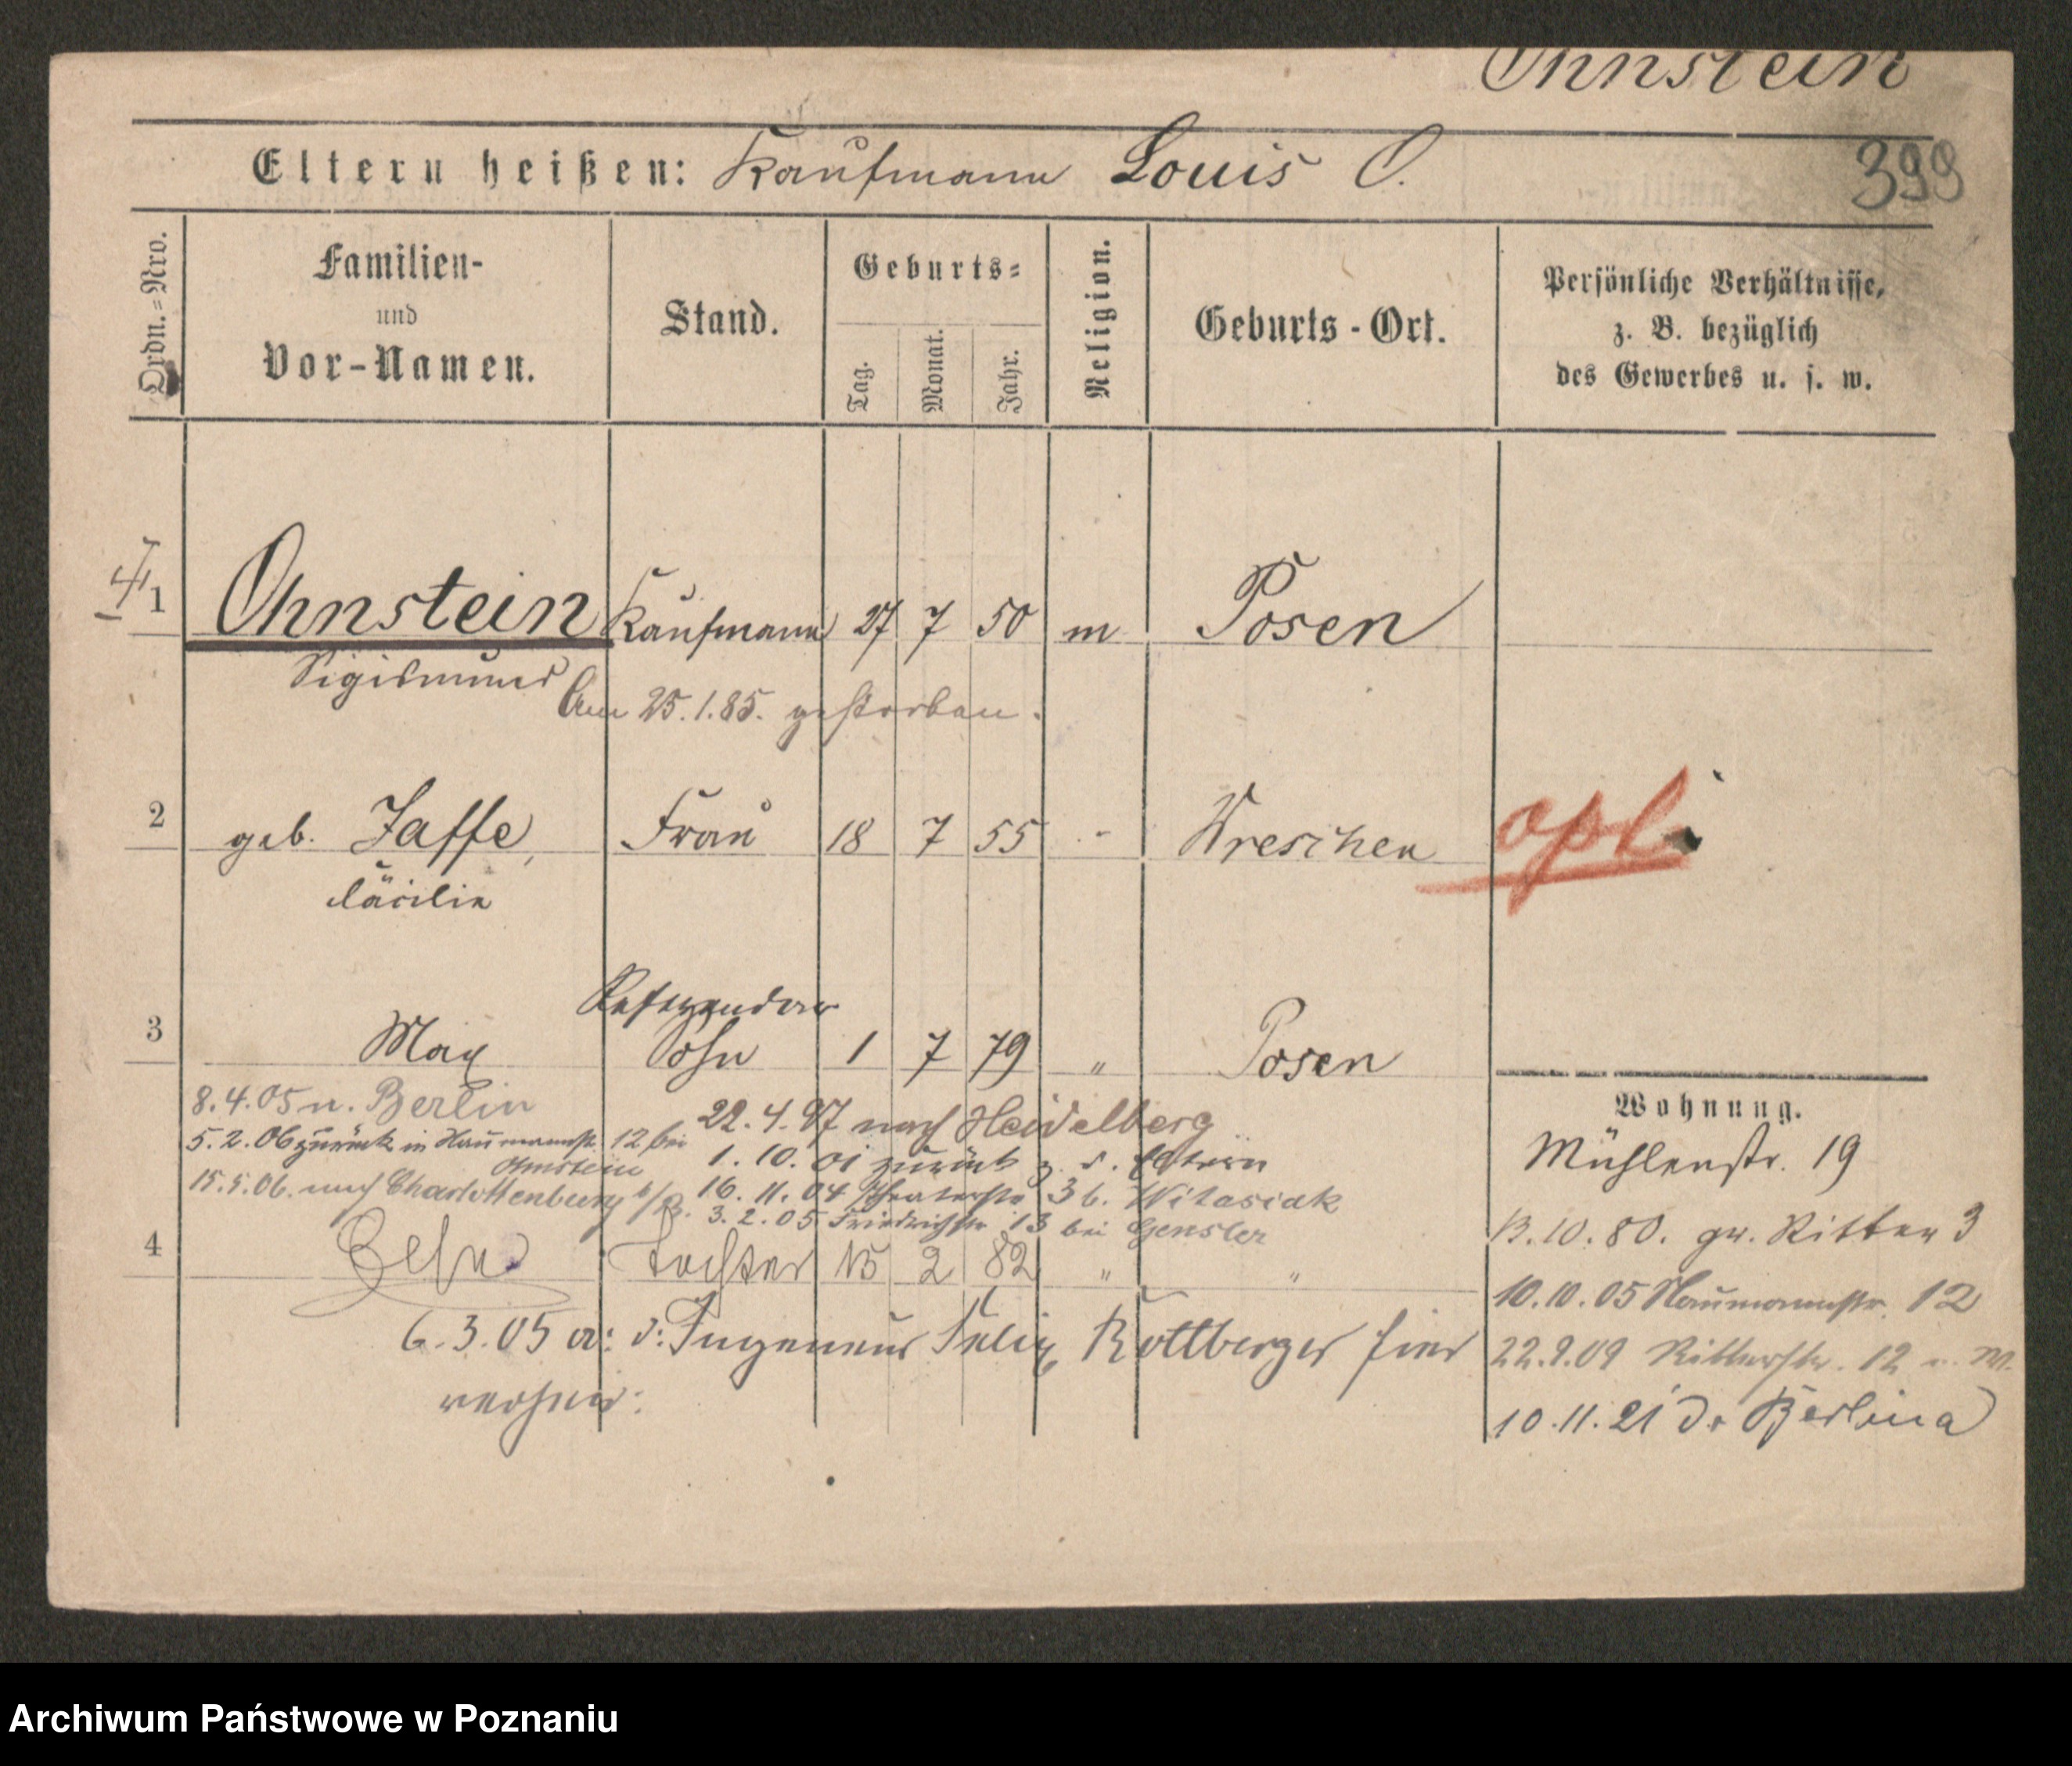 Ohnstein
Eltern heißen: Kaufmann Louis O.
399
Ordn.=Nro.
Familien-
und
Vor-Namen.
Stand.
Geburts=
Tag.
Monat.
Jahr.
Religion.
Geburts-Ort.
Persönliche Verhältnisse,
z. B. bezüglich
des Gewerbes u. s. w.
1 Ohnstein Kaufmann 27 7 50 m Posen
Sigismund
Am 25.1.85. gestorben.
2 geb. Jaffe, Frau 18 7 55 - Wreschen
opł.
Cäcilie
Referendar
3 Max Sohn 1 7 79 " Posen
8.4.05 n. Berlin
5.2.06 zurück in Naumannstr. 12 bei
Ohnstein
15.5.06. nach Charlottenburg b/B.
22.4.97 nach Heidelberg
1.10.01 zurück z. d. Eltern
16.11.04 Theaterstr 3 b. Witasiak
3.2.05 Friedrichstr 13 bei Gensler
4 Tochter 15 2 82 " "
6.3.05 a: d: Ingenieur Felix Rottberger hier
verheir:
Wohnung.
Mühlenstr. 19
13.10.80. gr. Ritter 3
10.10.05 Naumannstr. 12
22.9.09 Ritterstr. 12
10.11.21 do Berlina